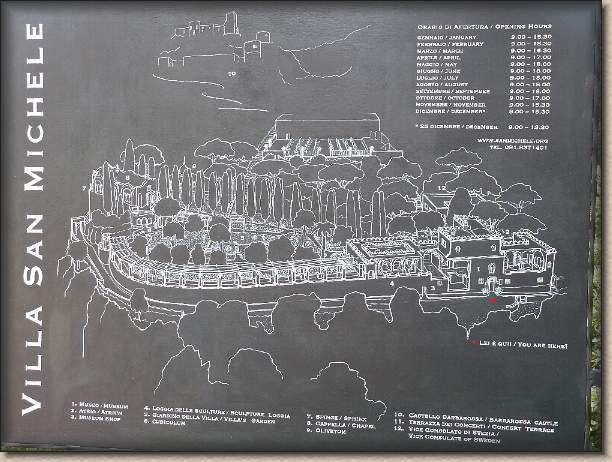 VILLA SAN MICHELE
ORARIO DI APERTURA / OPENING HOURS
GENNAIO / JANUARY 9.00 – 15.30
FEBBRAIO / FEBRUARY 9.00 – 15.30
MARZO / MARCH 9.00 – 16.30
APRILE / APRIL 9.00 – 17.00
MAGGIO / MAY 9.00 – 18.00
GIUGNO / JUNE 9.00 – 18.00
LUGLIO / JULY 9.00 – 18.00
AGOSTO / AUGUST 9.00 – 18.00
SETTEMBRE / SEPTEMBER 9.00 – 18.00
OTTOBRE / OCTOBER 9.00 – 17.00
NOVEMBRE / NOVEMBER 9.00 – 15.30
DICEMBRE / DECEMBER* 9.00 – 15.30
* DICEMBRE / DECEMBER 9.00 – 12.30
WWW.SANMICHELE.ORG
TEL. 081.8371401
10
12
4
3
1
LEI È QUI! / YOU ARE HERE!
1. MUSEO / MUSEUM
2. ATRIO / ATRIUM
3. MUSEUM SHOP
4. LOGGIA DELLE SCULTURE / SCULPTURE LOGGIA
5. GIARDINO DELLA VILLA / VILLA'S GARDEN
6. CUBICULUM
7. SFINGE / SPHINX
8. CAPPELLA / CHAPEL
9. OLIVETUM
10. CASTELLO BARBAROSSA / BARBAROSSA CASTLE
11. TERRAZZA DEI CONCERTI / CONCERT TERRACE
12. VICE CONSOLATO DI SVEZIA /
VICE CONSULATE OF SWEDEN